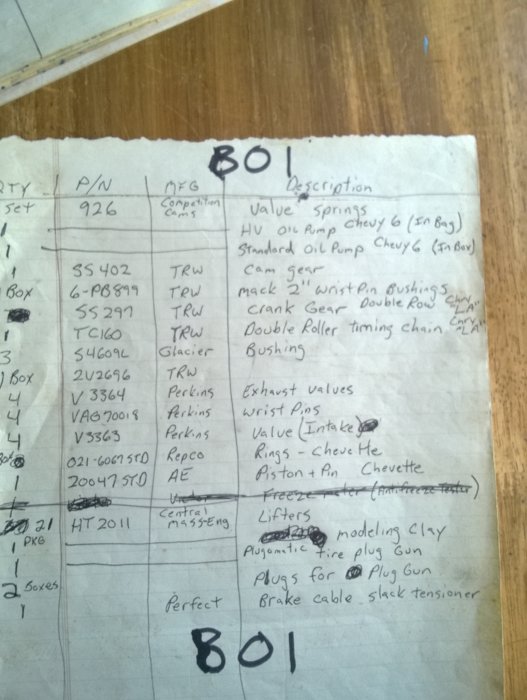 BO1
QTY P/N MFG Description
set 926 Competition Cams Value springs
1 HV Oil Pump Chevy 6 (In Bag)
1 Standard Oil Pump Chevy 6 (In Box)
1 SS 402 TRW Cam gear
Box 6-PB899 TRW mack 2" wrist Pin Bushings
SS 297 TRW Crank Gear Double Row Chry "LA"
1 TC160 TRW Double Roller timing chain Chry "LA"
3 Glacier Bushing
1 Box 2V2696 TRW
4 V3364 Perkins Exhaust values
4 VAG70018 Perkins wrist Pins
4 V3363 Perkins Value (Intake)
021-6067 STD Repco Rings - Chevette
1 20047 STD AE Piston + Pin Chevette
1 Victor Freeze meter (Antifreeze Tester)
21 HT 2011 Central Mass-Eng Lifters
1 PKG modeling Clay
1 Plugamatic tire plug Gun
2 Boxes Plugs for Plug Gun
1 Perfect Brake cable slack tensioner
BO1